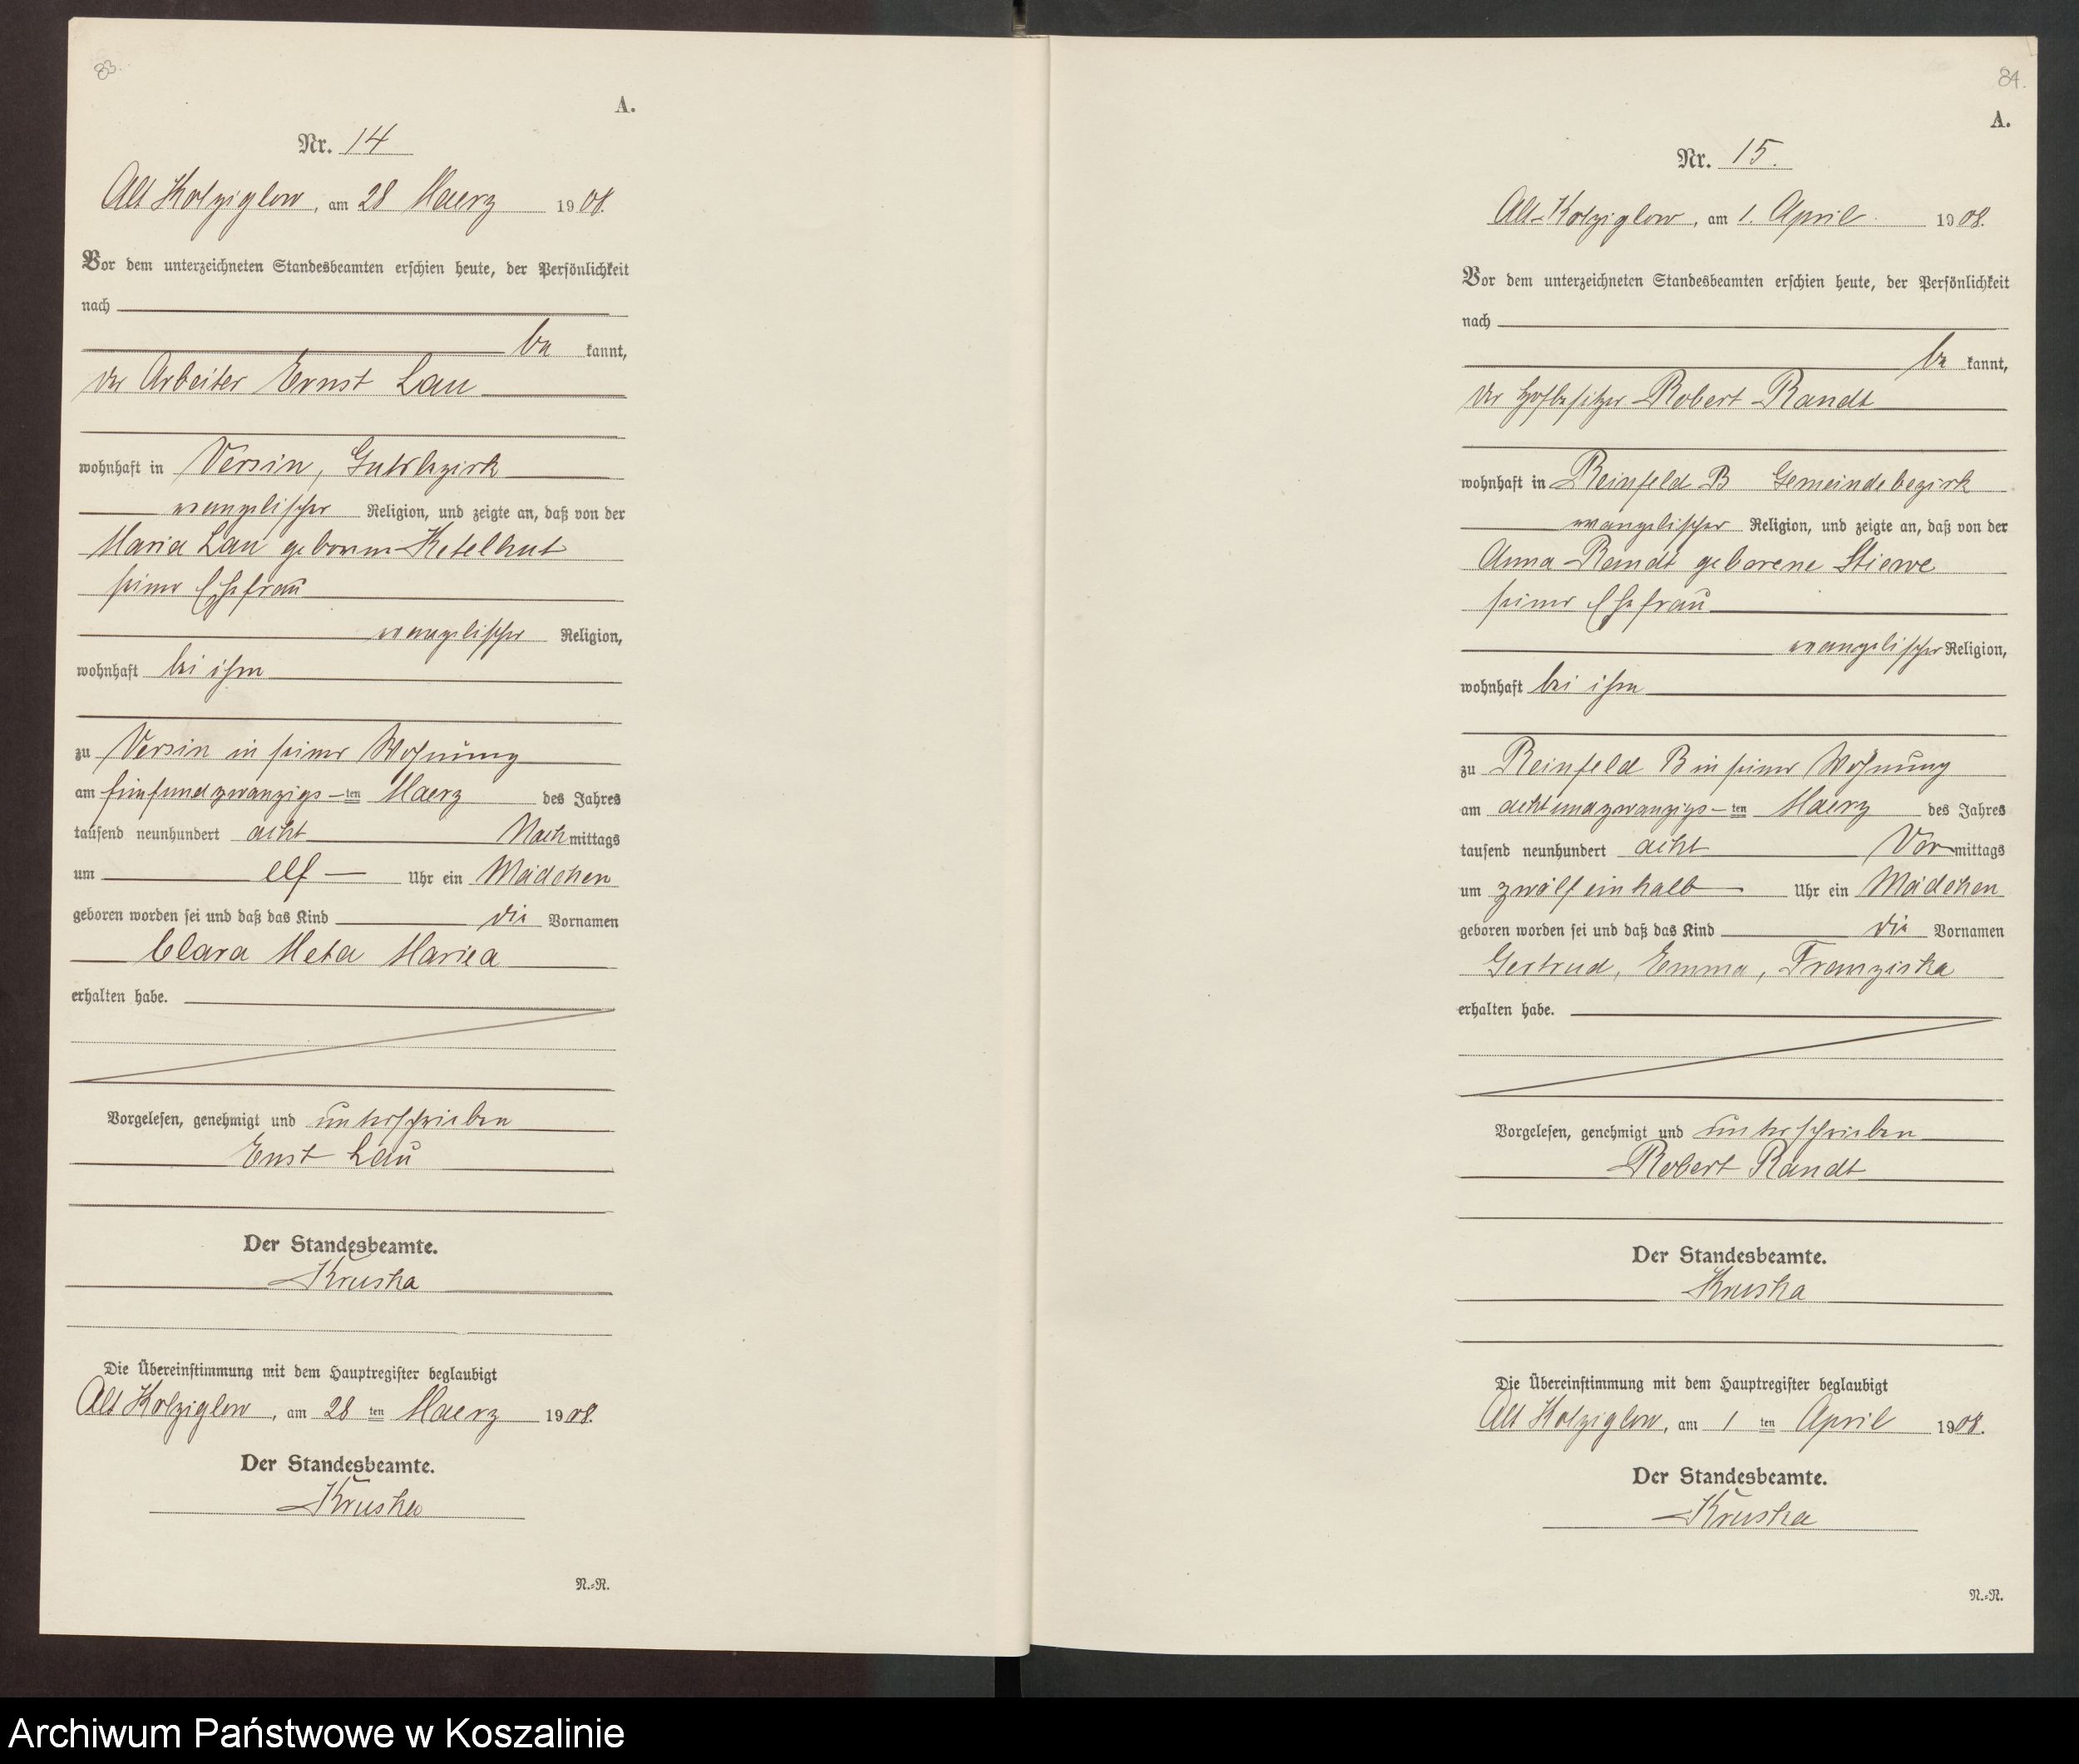 83.
A.
Nr. 14
Alt Kolziglow, am 28 Maerz 1908.
Vor dem unterzeichneten Standesbeamten erschien heute, der Persönlichkeit
nach
be kannt,
der Arbeiter Ernst Lau
wohnhaft in Versin, Gutsbezirk
evangelischer Religion, und zeigte an, daß von der
Maria Lau geborenen Ketelhut
seiner Ehefrau
evangelischer Religion,
wohnhaft bei ihm
zu Versin in seiner Wohnung
am fünfundzwanzigs-ten Maerz des Jahres
tausend neunhundert acht Nachmittags
um elf Uhr ein Mädchen
geboren worden sei und daß das Kind die Vornamen
Clara Meta Mariea
erhalten habe.
Vorgelesen, genehmigt und unterschrieben
Enst Lau
Der Standesbeamte.
Kruska
Die Übereinstimmung mit dem Hauptregister beglaubigt
Alt Kolziglow, am 28 ten Maerz 1908.
Der Standesbeamte.
Kruska
N.-N.
84.
A.
Nr. 15.
Alt-Kolziglow, am 1. April 1908.
Vor dem unterzeichneten Standesbeamten erschien heute, der Persönlichkeit
nach
be kannt,
der Hofbesitzer Robert Randt
wohnhaft in Reinfeld B Gemeindebezirk
evangelischer Religion, und zeigte an, daß von der
Anna Randt geborene Stiewe
seiner Ehefrau
evangelischer Religion,
wohnhaft bei ihm
zu Reinfeld B in seiner Wohnung
am achtundzwanzigs-ten Maerz des Jahres
tausend neunhundert acht Vormittags
um zwölf ein halb Uhr ein Mädchen
geboren worden sei und daß das Kind die Vornamen
Gertrud, Emma, Franziska
erhalten habe.
Vorgelesen, genehmigt und unterschrieben
Robert Randt
Der Standesbeamte.
Kruska
Die Übereinstimmung mit dem Hauptregister beglaubigt
Alt Kolziglow, am 1 ten April 1908.
Der Standesbeamte.
Kruska
N.-N.
Archiwum Państwowe w Koszalinie